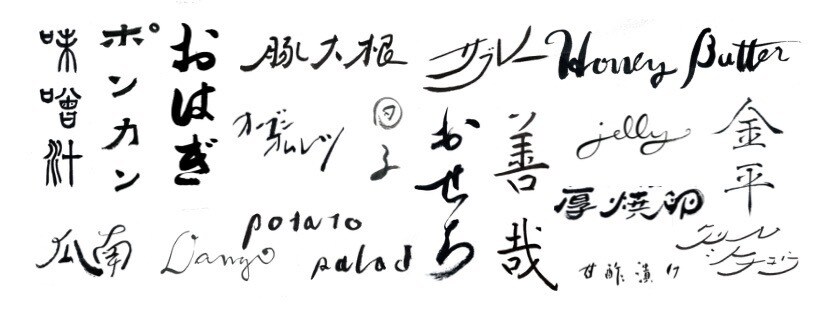 味噌汁
ポンカン
おはぎ
豚大根
サブレー
Honey Butter
オープン
オムレツ
団子
おせち
善哉
jelly
金平
厚焼卵
南瓜
Dango
potato
salad
甘酢漬け
シチュー